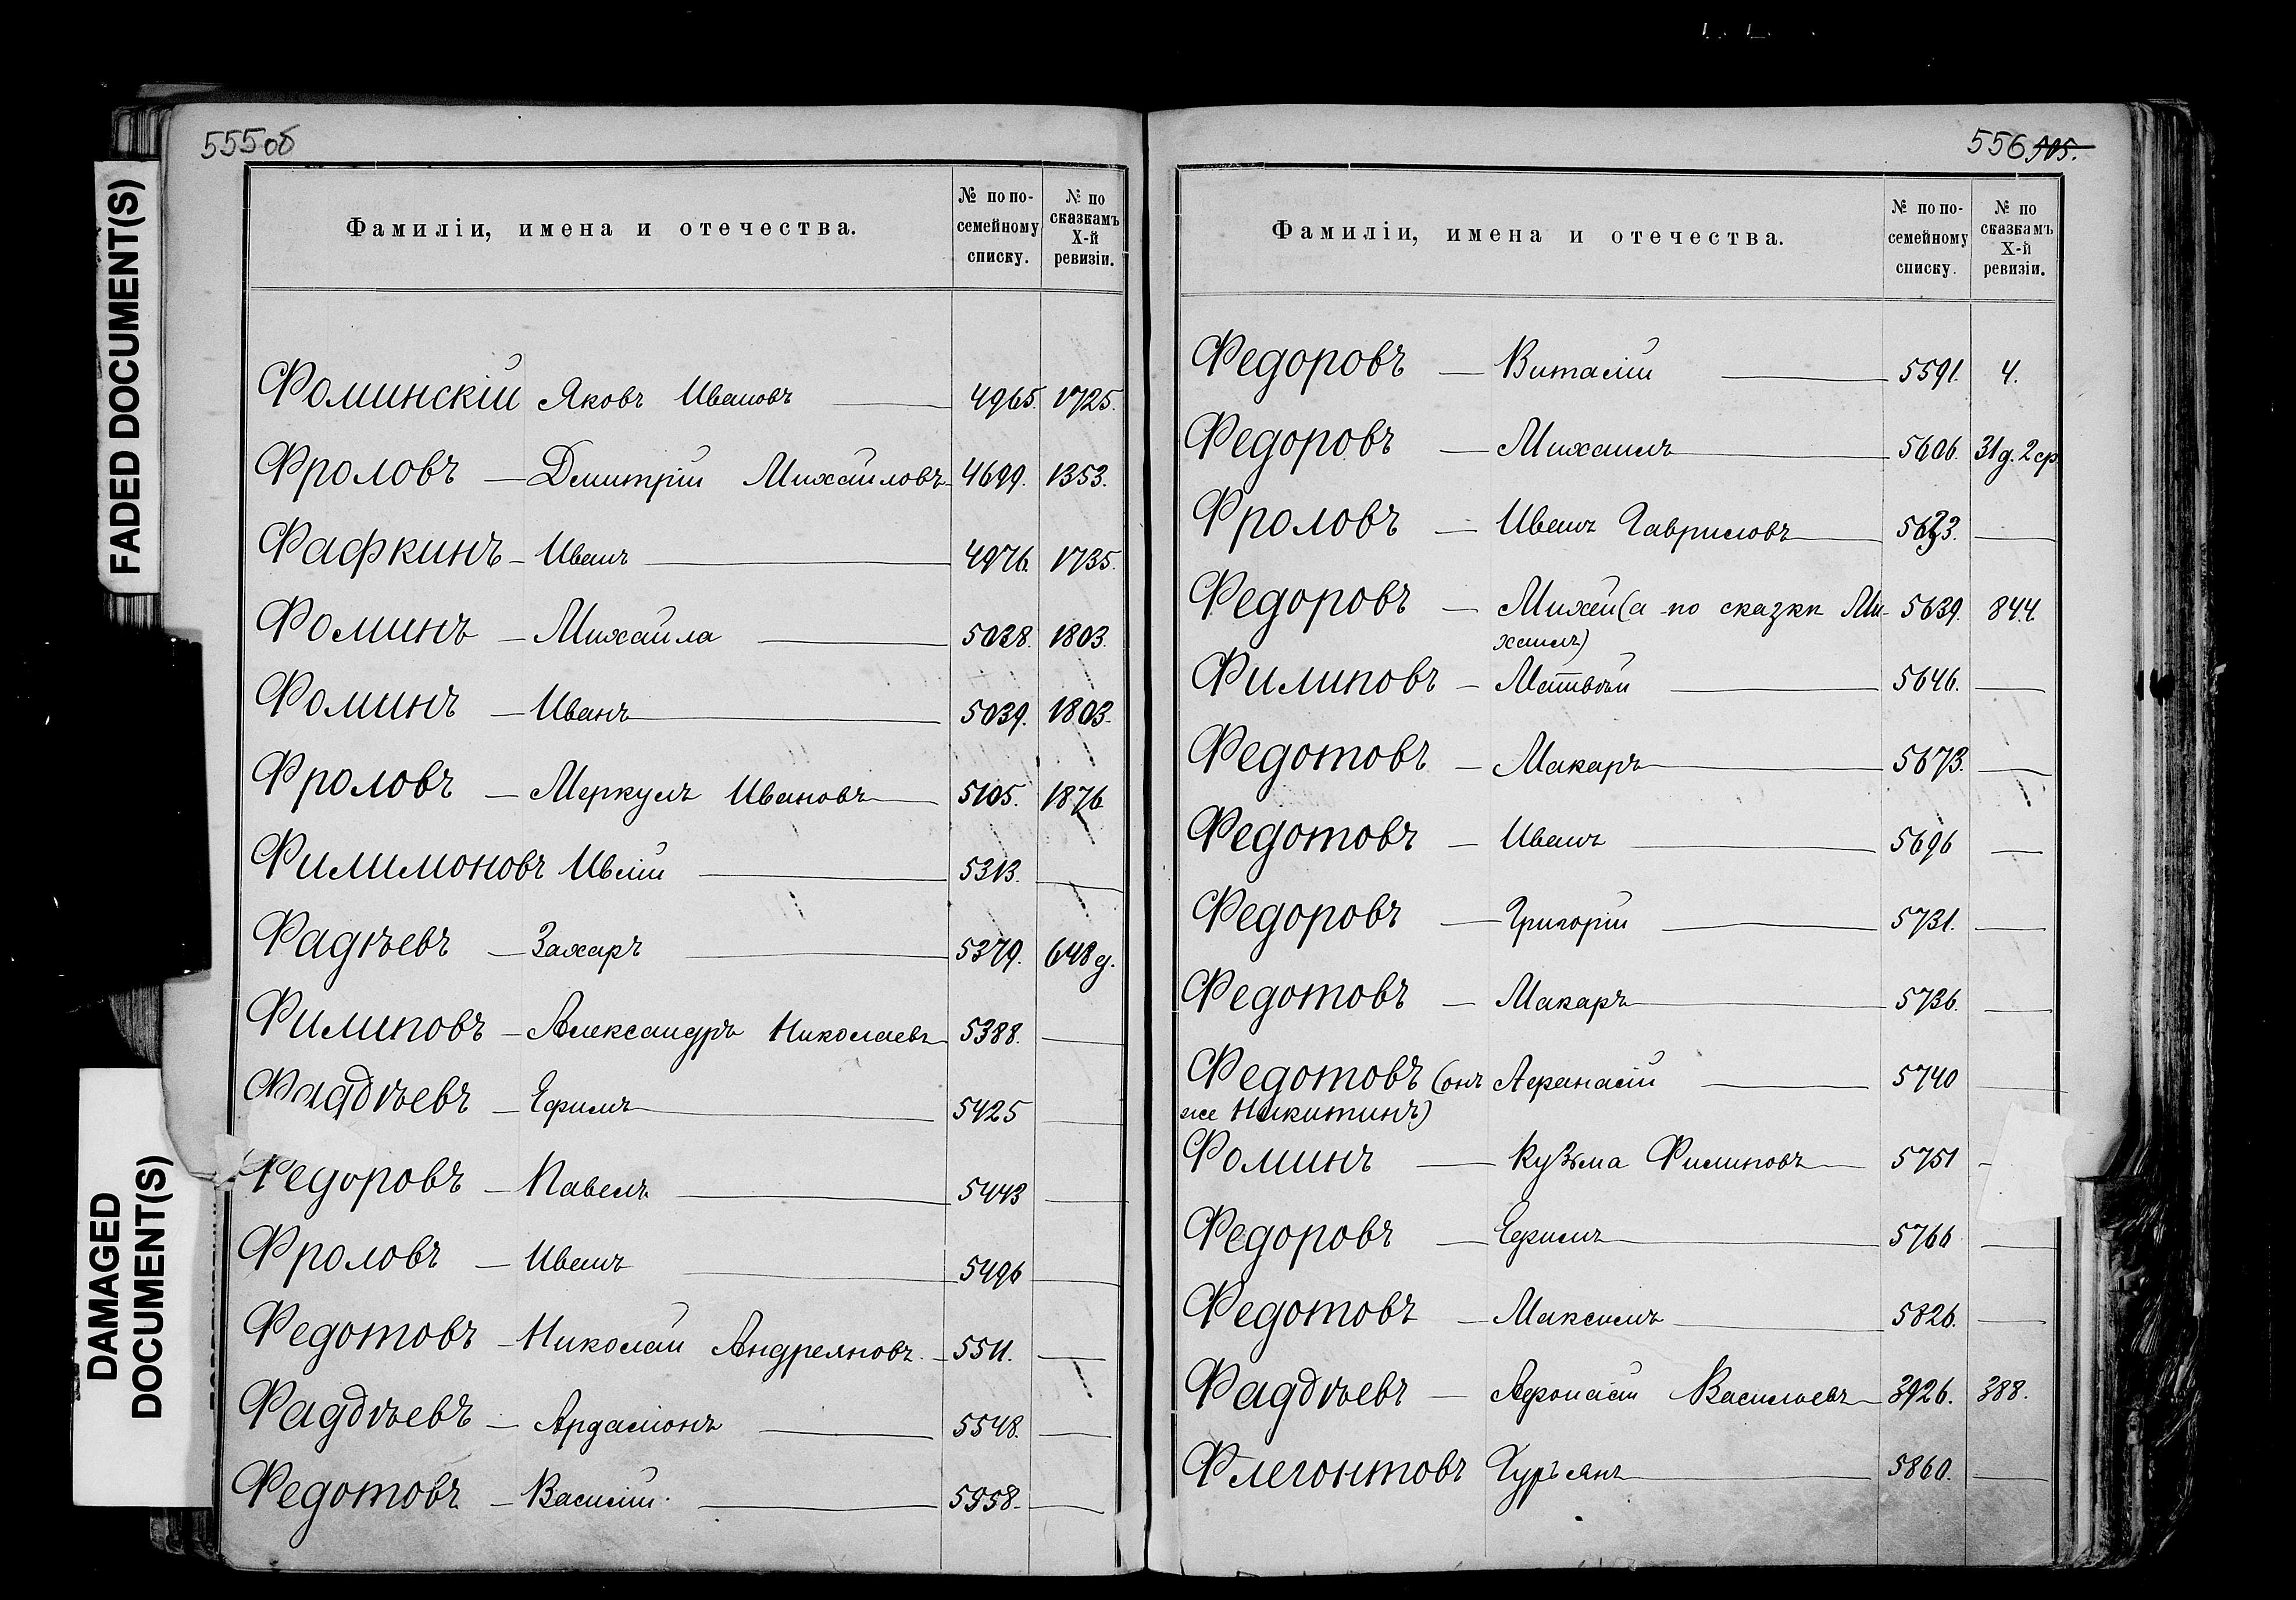 FADED DOCUMENT(S)
DAMAGED
DOCUMENT(S)
555об
Фамиліи, имена и отечества.
№ по по-
семейному
списку.
№ по
сказкамъ
X-й
ревизіи.
Фоминскій Яковъ Ивановъ — 4965. 1725.
Фроловъ — Дмитрій Михайловъ — 4699. 1353.
Фафкинъ — Иванъ — 4976. 1735.
Фоминъ — Михайла — 5038. 1803.
Фоминъ — Иванъ — 5039. 1803.
Фроловъ — Меркулъ Ивановъ — 5105. 1876
Филимоновъ Ивлій — 5313. —
Фадѣевъ — Захаръ — 5379. 648 д.
Филиповъ — Александръ Николаевъ — 5388. —
Фаддѣевъ — Ефимъ — 5425 —
Федоровъ — Павелъ — 5443 —
Фроловъ — Иванъ — 5496 —
Федотовъ — Николай Андреяновъ. — 5511. —
Фаддѣевъ — Ардаліонъ — 5548. —
Федотовъ — Василій — 5958. —
556 505.
Фамиліи, имена и отечества.
№ по по-
семейному
списку.
№ по
сказкамъ
X-й
ревизіи.
Федоровъ — Виталій — 5591. 4.
Федоровъ — Михаилъ — 5606. 31 д. 2 ср
Фроловъ — Иванъ Гавриловъ — —
Федоровъ — Михей (а по сказкѣ Ми- 5639. 844.
хаилъ)
Филиповъ — Матвѣй — 5646. —
Федотовъ — Макаръ — 5673. —
Федотовъ — Иванъ — 5696 —
Федоровъ — Григорій — 5731. —
Федотовъ — Макаръ — 5736. —
Федотовъ (онъ Афанасій — 5740 —
же Никитинъ)
Фоминъ — Кузьма Филиповъ — 5751 —
Федоровъ — Ефимъ — 5766 —
Федотовъ — Максимъ — 5826. —
Фаддѣевъ — Афонасій Васильевъ — 3926. 388.
Флегонтовъ Гурьянъ — 5860. —